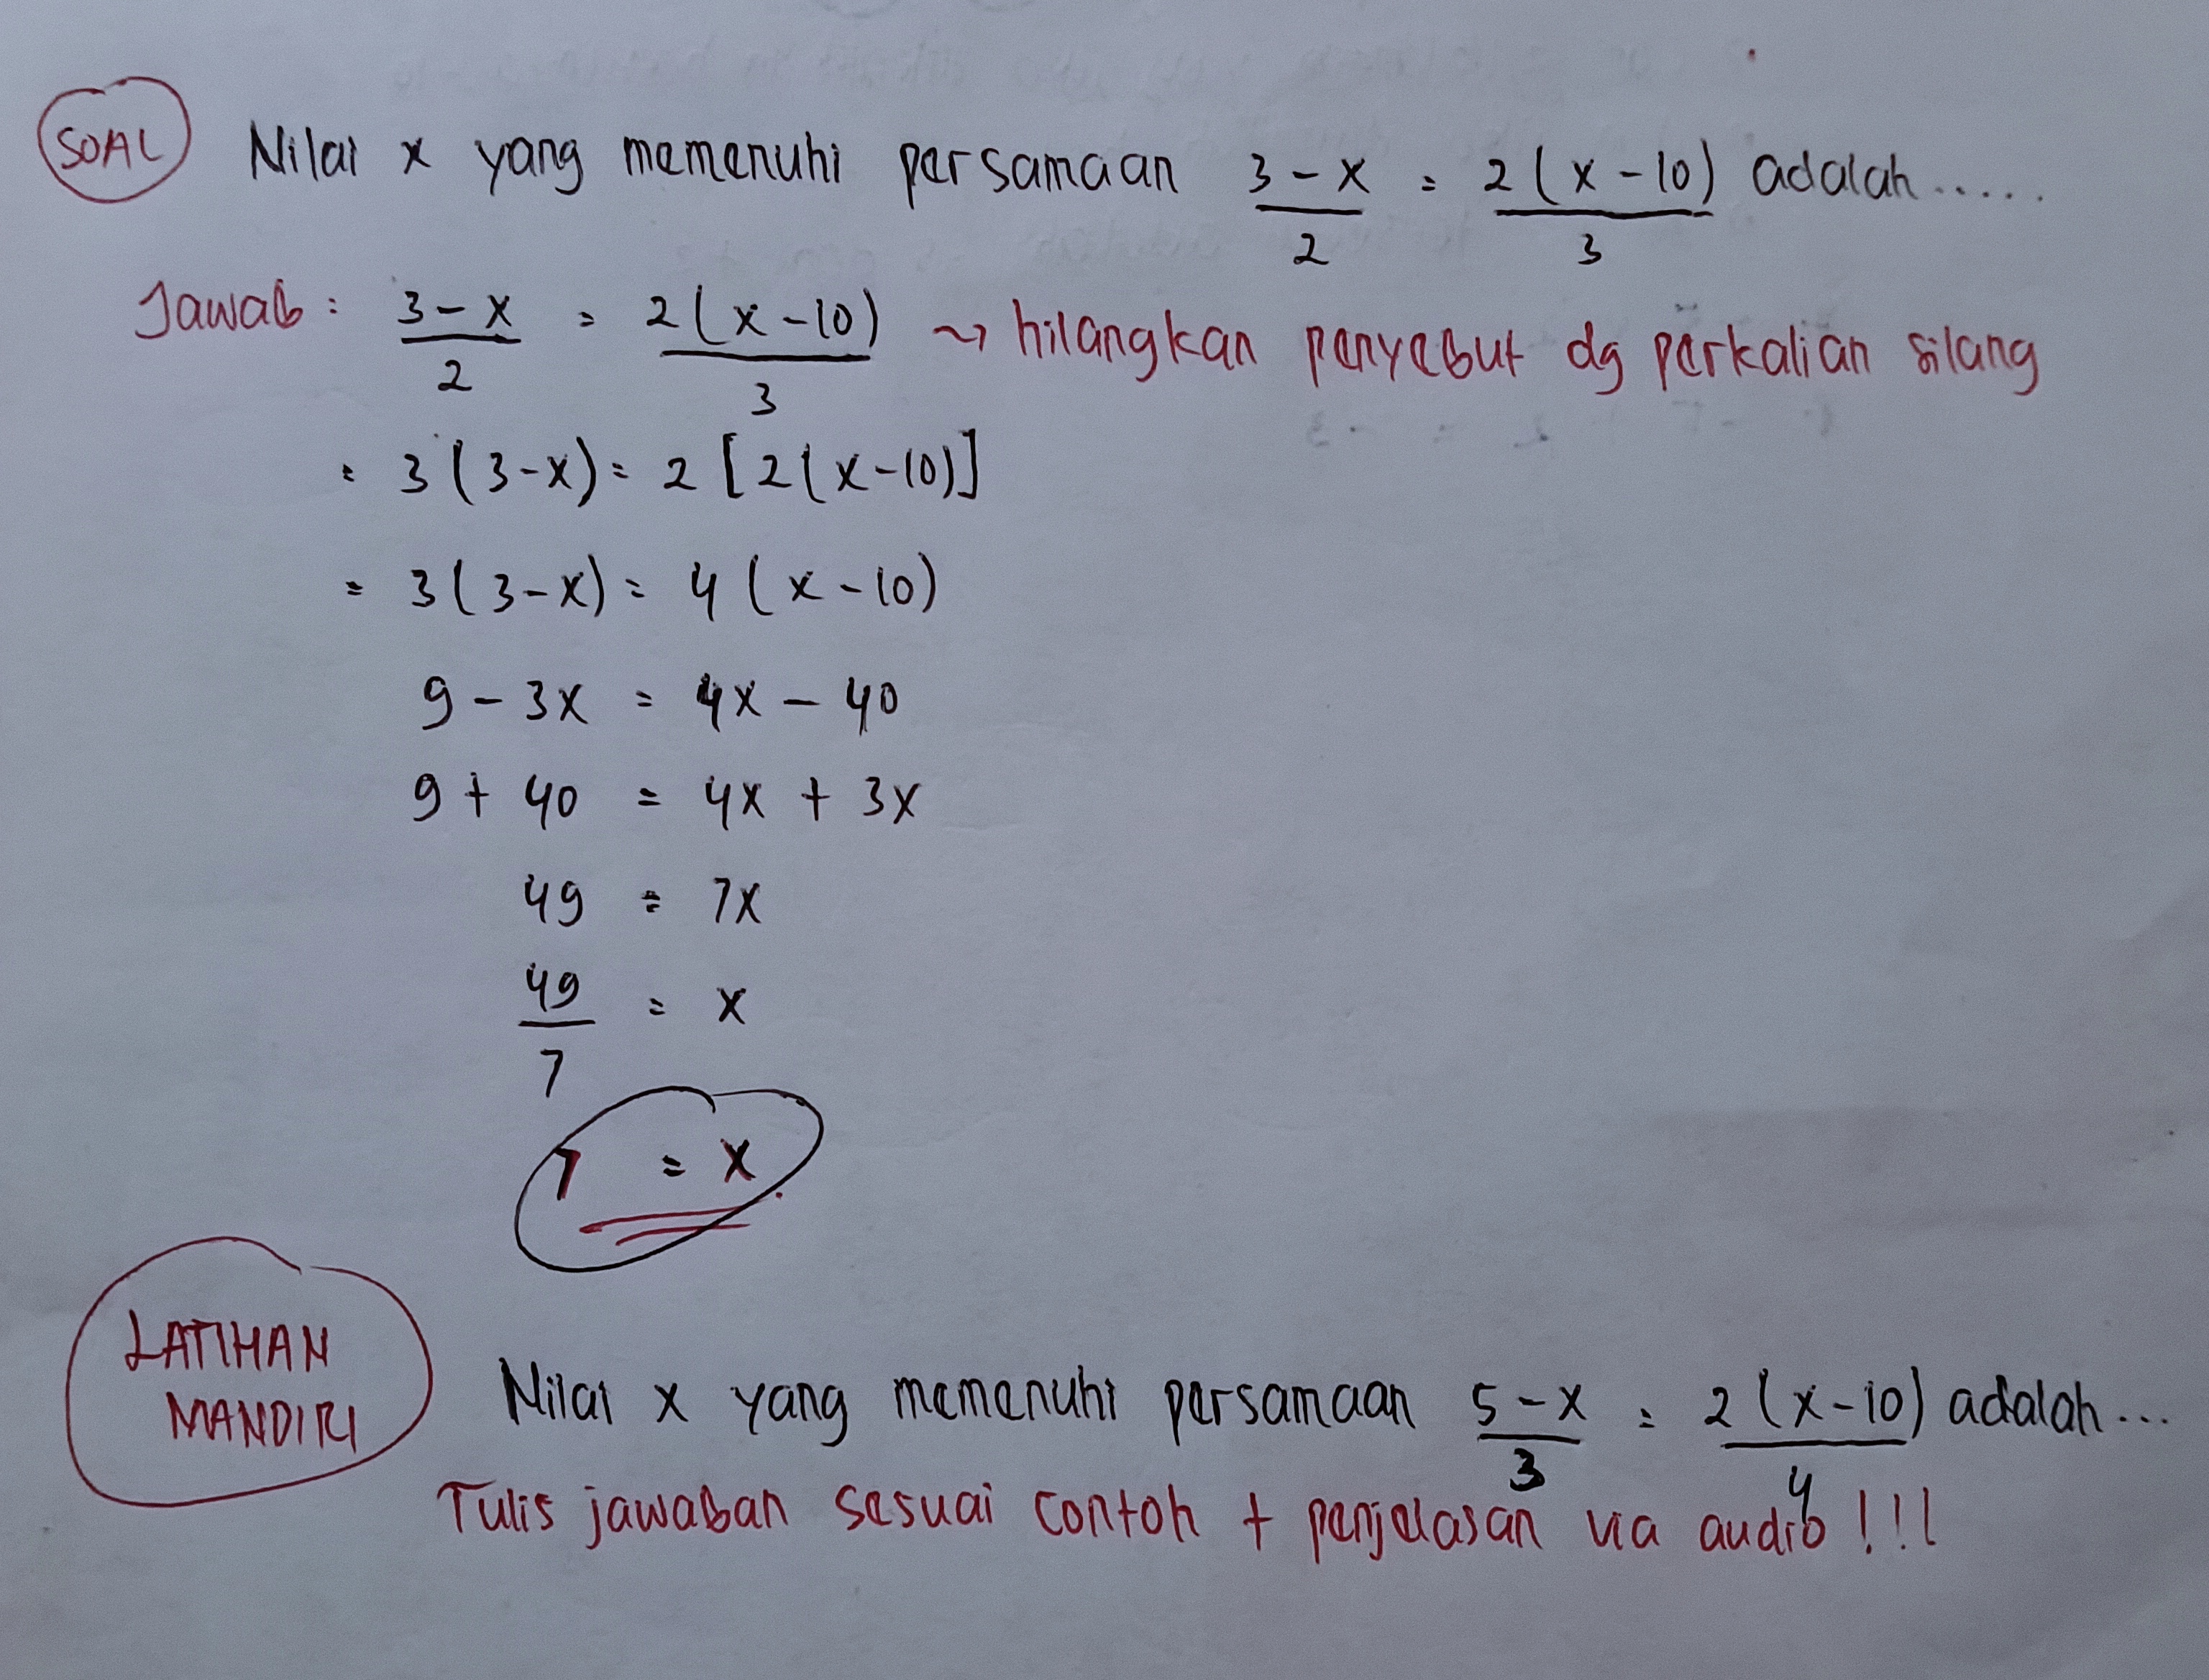 SOAL Nilai x yang memenuhi persamaan (3 - x)/2 = 2(x - 10)/3 adalah.....
Jawab : (3 - x)/2 = 2(x - 10)/3 ~> hilangkan penyebut dg perkalian silang
= 3(3 - x) = 2[2(x - 10)]
= 3(3 - x) = 4(x - 10)
9 - 3x = 4x - 40
9 + 40 = 4x + 3x
49 = 7x
49/7 = x
7 = x
LATIHAN MANDIRI
Nilai x yang memenuhi persamaan (5 - x)/3 = 2(x - 10)/4 adalah...
Tulis jawaban sesuai contoh + penjelasan via audio !!!